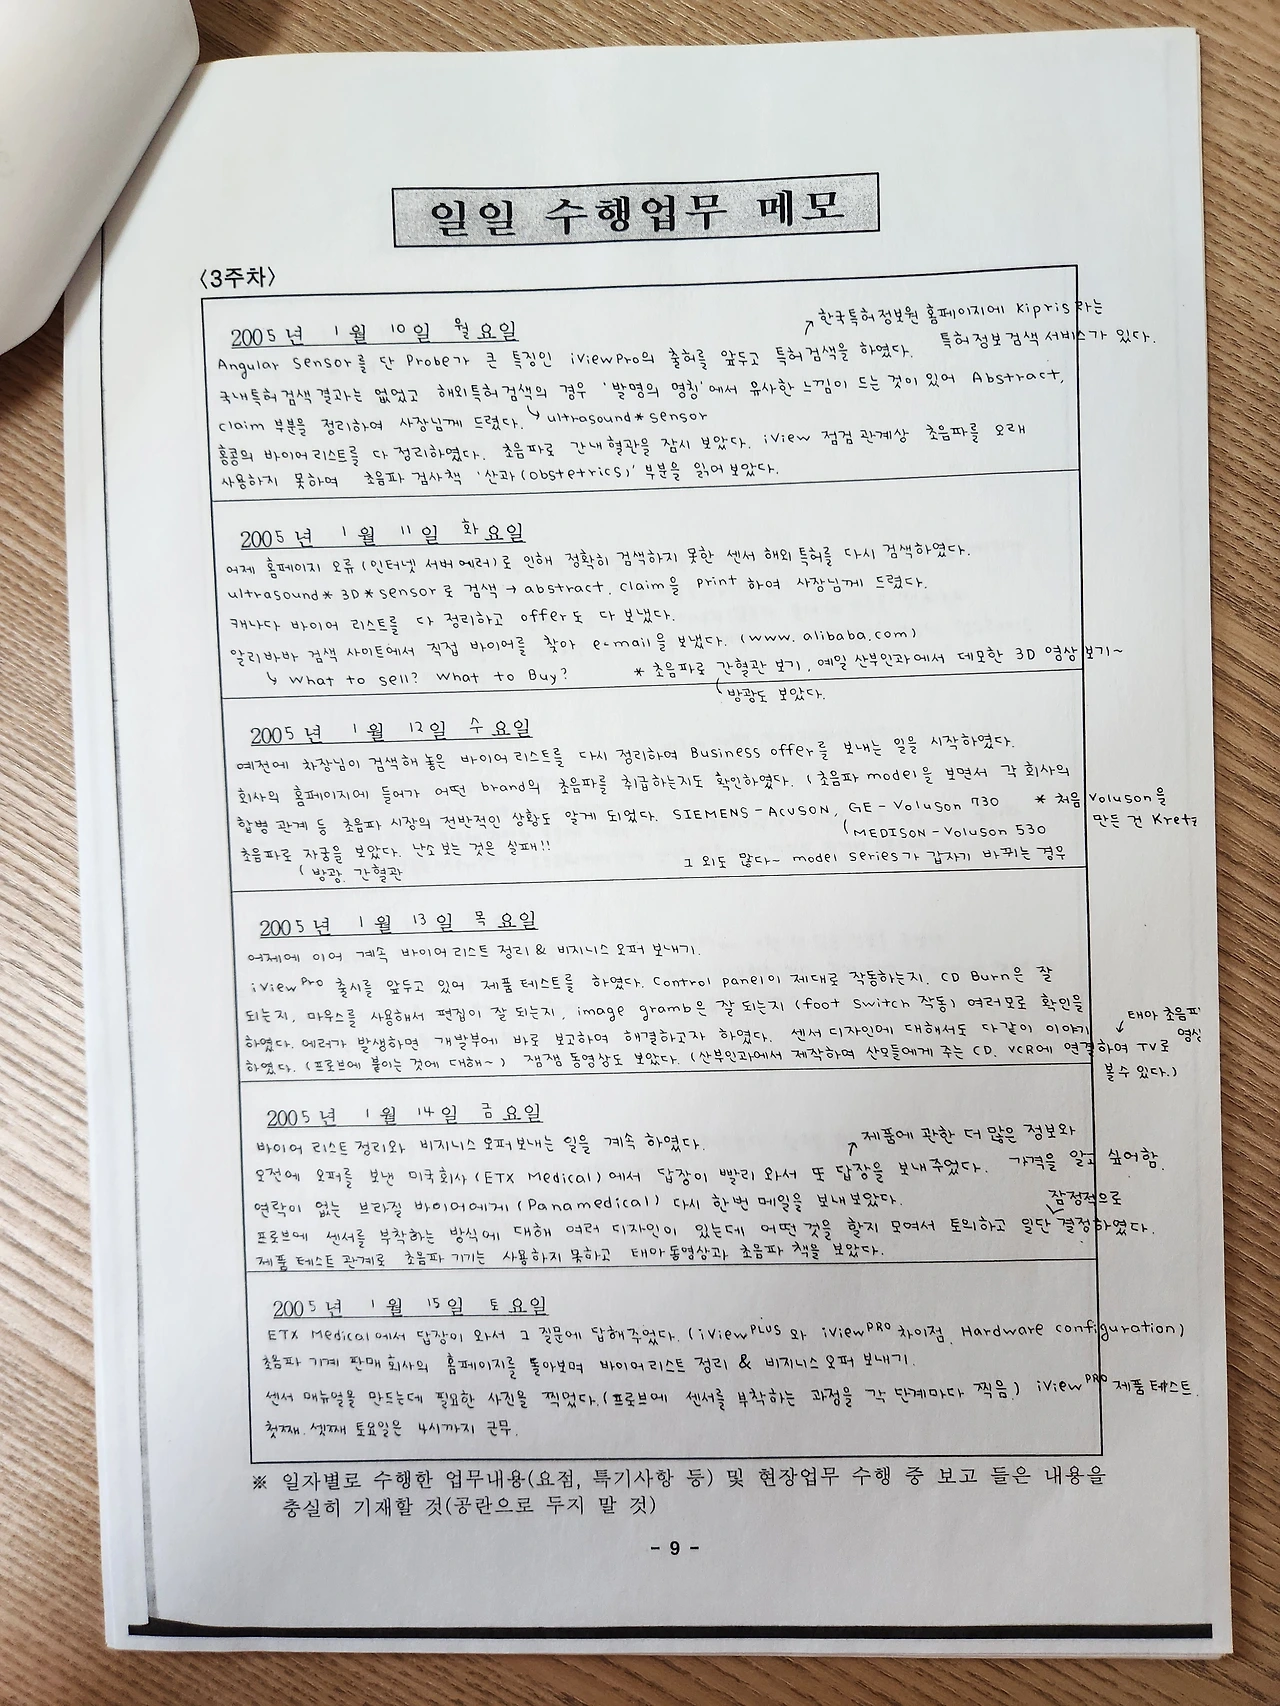 일일 수행업무 메모
<3주차>
2005년 1월 10일 월요일
↗한국특허정보원 홈페이지에 Kipris라는
특허정보 검색 서비스가 있다.
Angular Sensor를 단 Probe가 큰 특징인 iViewPro의 출허를 앞두고 특허검색을 하였다.
국내특허 검색 결과는 없었고 해외특허 검색의 경우 '발명의 명칭'에서 유사한 느낌이 드는 것이 있어 Abstract,
claim 부분을 정리하여 사장님께 드렸다. ↳ultrasound*sensor
홍콩의 바이어 리스트를 다 정리하였다. 초음파로 간내 혈관을 잠시 보았다. iView 점검 관계상 초음파를 오래
사용하지 못하여 초음파 검사책 '산과(Obstetrics)' 부분을 읽어 보았다.
2005년 1월 11일 화요일
어제 홈페이지 오류(인터넷 서버 에러)로 인해 정확히 검색하지 못한 센서 해외 특허를 다시 검색하였다.
ultrasound* 3D*sensor로 검색 → abstract, claim을 print 하여 사장님께 드렸다.
캐나다 바이어 리스트를 다 정리하고 offer도 다 보냈다.
알리바바 검색 사이트에서 직접 바이어를 찾아 e-mail을 보냈다. (www. alibaba.com)
↳ What to sell? What to Buy? * 초음파로 간혈관 보기, 예일 산부인과에서 데모한 3D 영상보기~
방광도 보았다.
2005년 1월 12일 수요일
예전에 차장님이 검색해 놓은 바이어 리스트를 다시 정리하여 Business offer를 보내는 일을 시작하였다.
회사의 홈페이지에 들어가 어떤 brand의 초음파를 취급하는지도 확인하였다. (초음파 model을 보면서 각 회사의
합병 관계 등 초음파 시장의 전반적인 상황도 알게 되었다. SIEMENS-ACUSON, GE-Voluson 730 * 처음 Voluson을
만든 건 Kretz
MEDISON-Voluson 530
초음파로 자궁을 보았다. 난소 보는 것은 실패!! 그 외도 많다~ model series가 갑자기 바뀌는 경우
방광, 간혈관
2005년 1월 13일 목요일
어제에 이어 계속 바이어 리스트 정리 & 비지니스 오퍼 보내기.
iView Pro 출시를 앞두고 있어 제품 테스트를 하였다. Control panel이 제대로 작동하는지, CD Burn은 잘
되는지, 마우스를 사용해서 편집이 잘 되는지, image gramb은 잘 되는지 (foot Switch 작동) 여러모로 확인을
하였다. 에러가 발생하면 개발부에 바로 보고하여 해결하고자 하였다. 센서 디자인에 대해서도 다같이 이야기
태아 초음파
영상
하였다. (프로브에 붙이는 것에 대해~) 잼잼 동영상도 보았다. (산부인과에서 제작하여 산모들에게 주는 CD. VCR에 연결하여 TV로
볼 수 있다.)
2005년 1월 14일 금요일
바이어 리스트 정리와 비지니스 오퍼 보내는 일을 계속 하였다.
↗제품에 관한 더 많은 정보와
가격을 알고 싶어함.
오전에 오퍼를 보낸 미국회사(ETX Medical)에서 답장이 빨리 와서 또 답장을 보내 주었다.
연락이 없는 브라질 바이어에게 (Panamedical) 다시 한번 메일을 보내 보았다.
잠정적으로
프로브에 센서를 부착하는 방식에 대해 여러 디자인이 있는데 어떤 것을 할지 모여서 토의하고 일단 결정하였다.
제품 테스트 관계로 초음파 기기는 사용하지 못하고 태아동영상과 초음파 책을 보았다.
2005년 1월 15일 토요일
ETX Medical에서 답장이 와서 그 질문에 답해 주었다. (iView PLUS 와 iView PRO 차이점, Hardware configuration)
초음파 기계 판매 회사의 홈페이지를 돌아보며 바이어 리스트 정리 & 비지니스 오퍼 보내기.
센서 매뉴얼을 만드는데 필요한 사진을 찍었다.(프로브에 센서를 부착하는 과정을 각 단계마다 찍음) iView PRO 제품 테스트.
첫째, 셋째 토요일은 4시까지 근무.
※ 일자별로 수행한 업무내용(요점, 특기사항 등) 및 현장업무 수행 중 보고 들은 내용을
충실히 기재할 것(공란으로 두지 말 것)
- 9 -